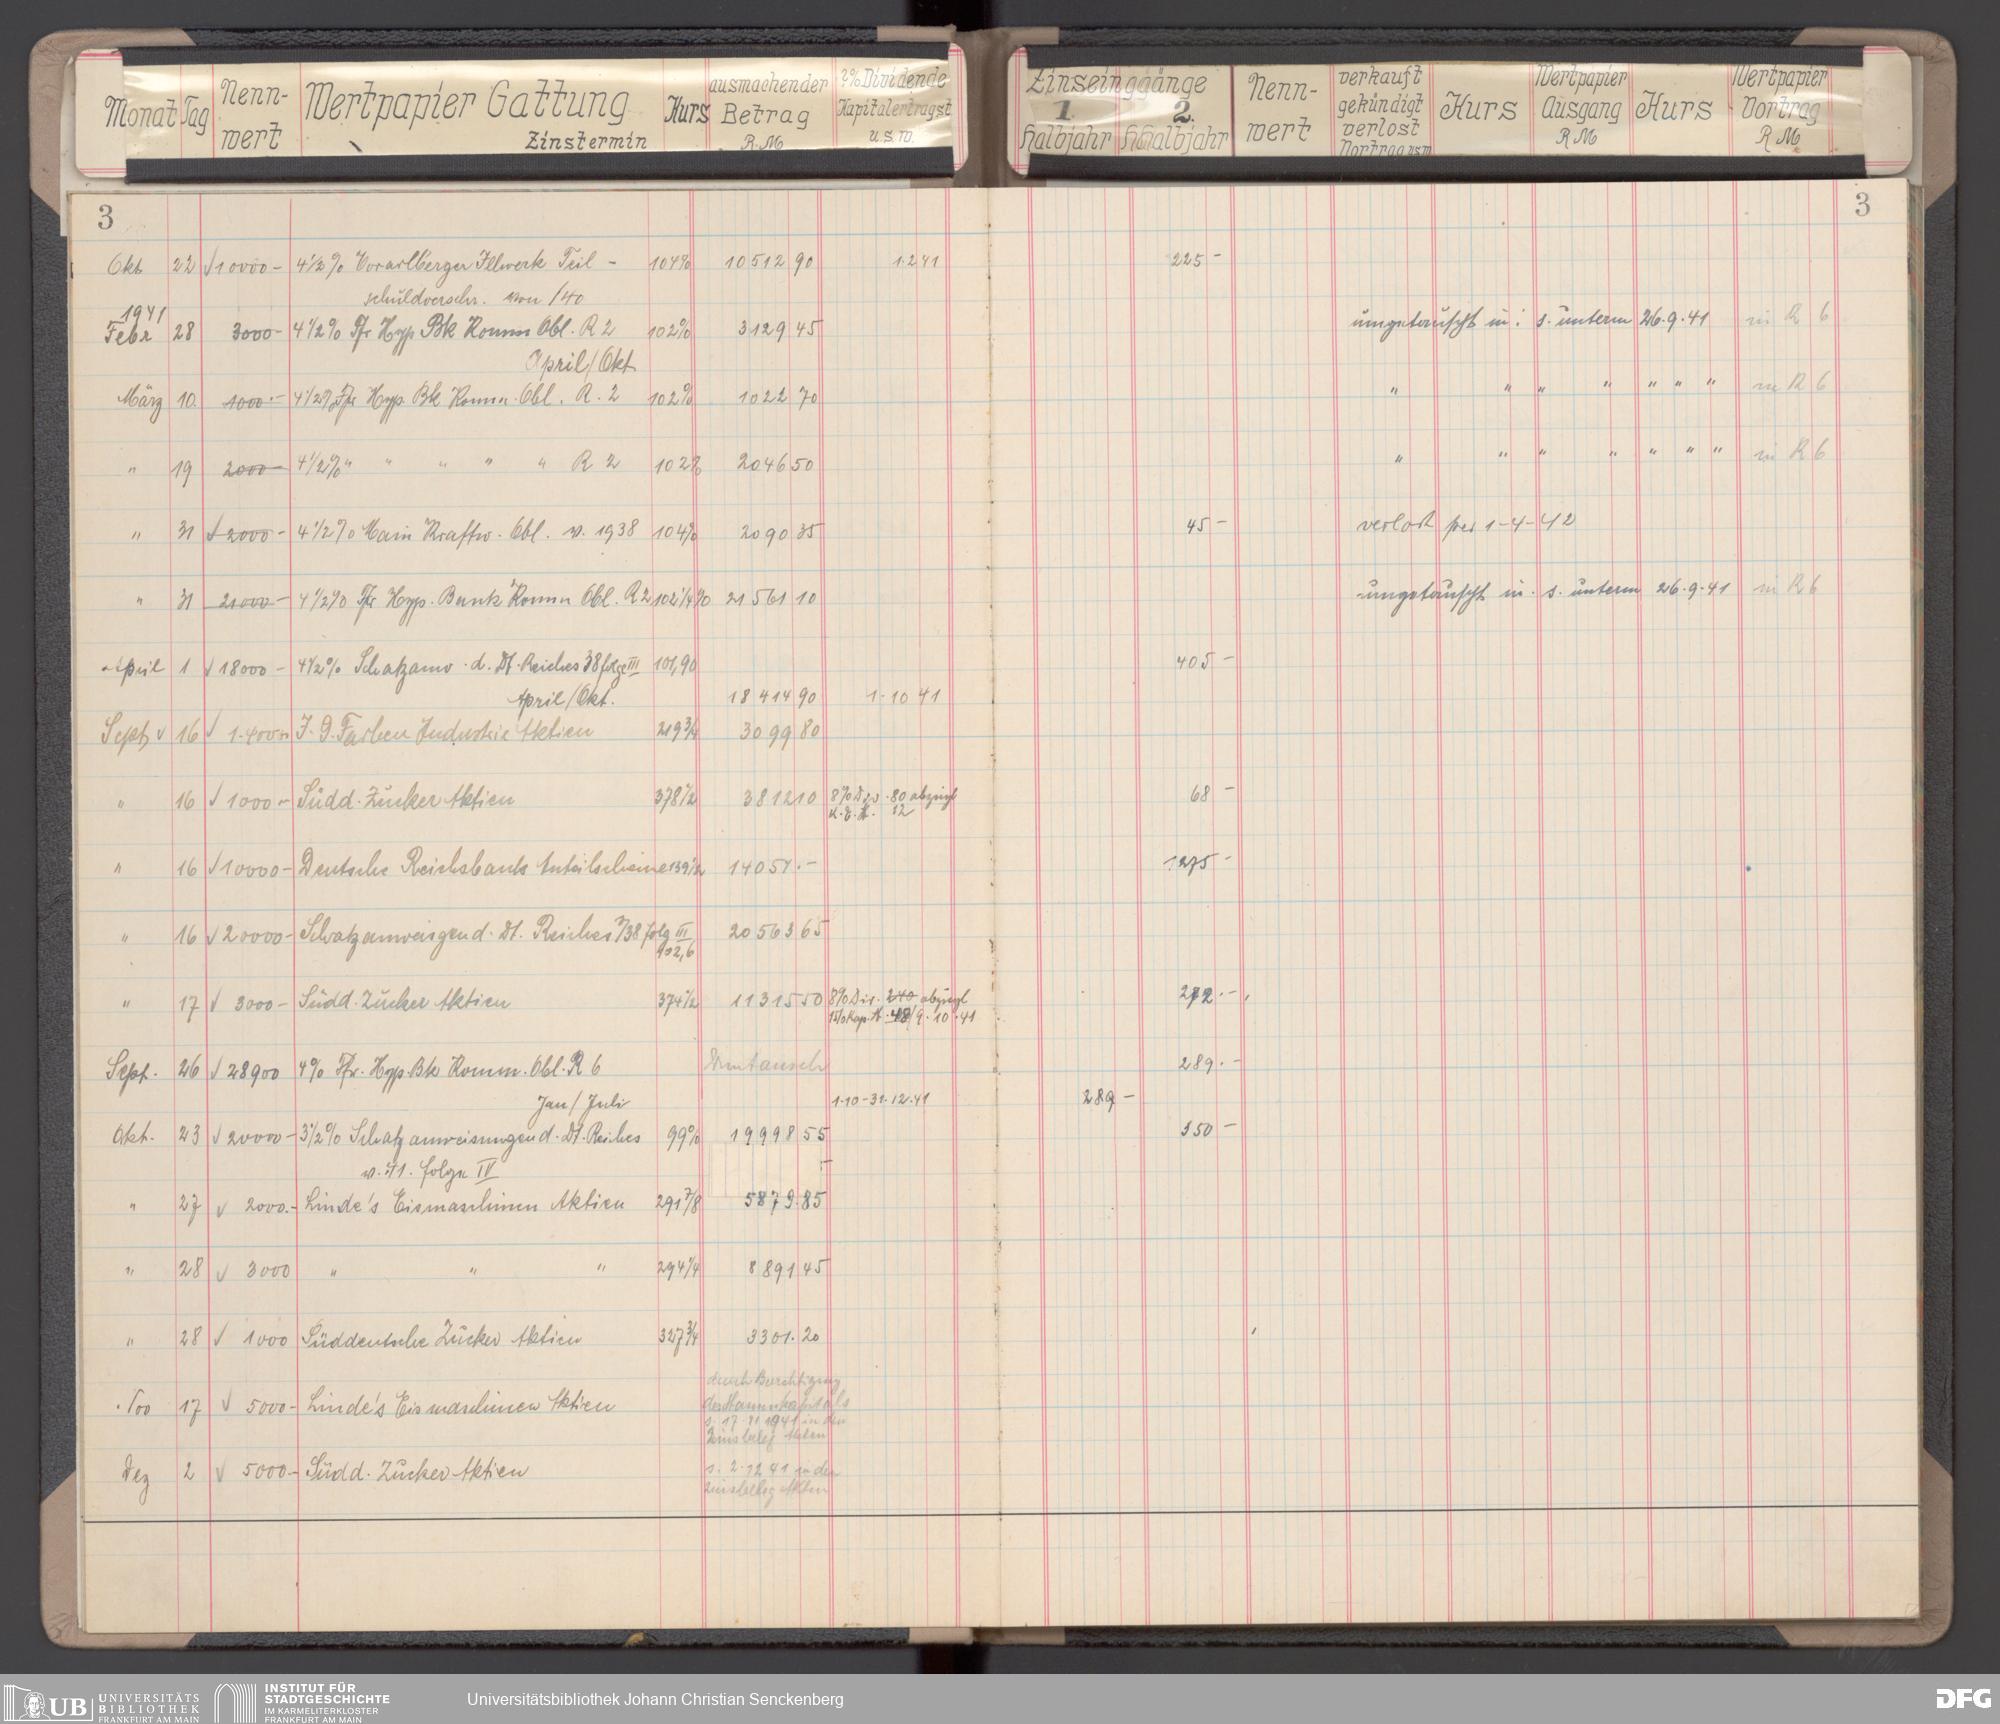 Monat Tag Nenn-wert Wertpapier Gattung Zinstermin Kurs ausmachender Betrag R.M 2% Dividende Kapitalertragst u.s.w.
Zinseinggänge 1. Halbjahr 2. Halbjahr Nenn-wert verkauft gekündigt verlost Vortrag usw Kurs Wertpapier Ausgang RM Kurs Wertpapier Vortrag RM
3 3
Okt 22 10000 - 4 1/2 % Vorarlberger Illwerk Teil - 104% 10512 90 1.2 41 225 -
schuldverschr. von /40
1941
Febr 28 3000 - 4 1/2 % Ffr Hyp Bk Komm Obl. R 2 102% 3129 45 umgetauscht in: s. unterm 26.9.41 in R 6
April/Okt
März 10. 1000.- 4 1/2 % Ffr Hyp. Bk Komm. Obl. R. 2 102% 1022 70 " " " " " " " in R 6
" 19 2000 - 4 1/2 % " " " " " R 2 102% 2046 50 " " " " " " " in R 6
" 31 2000 - 4 1/2 % Main Kraftw. Obl. v. 1938 104% 2090 35 45 - verlost per 1-4-42
" 31 21000 - 4 1/2 % Ffr Hyp. Bank Komm Obl. R 2 102 1/4 % 21561 10 umgetauscht in. s. unterm 26.9.41 in R 6
April 1 18000 - 4 1/2 % Schatzanw. d. Dt. Reiches 38 folge III 101,90 405 -
April/Okt. 18414 90 1.10 41
Sept 16 1.400 J. G. Farben Industrie Aktien 219 3/4 3099 80
" 16 1000 - Südd. Zucker Aktien 378 1/2 3812 10 8% Div. 80 abzügl 68 -
K.E.St. 12
" 16 10000 - Deutsche Reichsbank Anteilscheine 139 1/2 14051.- 1275 -
" 16 20000 - Schatzanweisgen d. Dt. Reiches 38 folg III 20563 65
102,6
" 17 3000 - Südd. Zucker Aktien 374 1/2 11315 50 8% Div. 240 abzügl 272.-
15% Kap. St. 48/9.10.41
Sept. 26 28900 4% Ffr. Hyp. Bk Komm. Obl. R 6 Umtausch 289.-
Jan/Juli 1.10-31.12.41 289 -
Okt. 23 20000 - 3 1/2 % Schatzanweisungen d. Dt. Reiches 99% 19998 55 350 -
v. 41. folge IV
" 27 2000.- Linde's Eismaschinen Aktien 291 7/8 5879.85
" 28 3000 " " " 294 1/4 8891 45
" 28 1000 Süddeutsche Zucker Aktien 327 3/4 3301.20
durch Berichtigung
Nov 17 5000 - Linde's Eismaschinen Aktien des Stammkapitals
s. 17.11 1941 in den
Zinsbeleg Akten
Dez 2 5000 - Südd. Zucker Aktien s. 2.12 41 in den
Zinsbeleg Akten
UB UNIVERSITÄTS
BIBLIOTHEK
FRANKFURT AM MAIN
INSTITUT FÜR
STADTGESCHICHTE
IM KARMELITERKLOSTER
FRANKFURT AM MAIN
Universitätsbibliothek Johann Christian Senckenberg
DFG